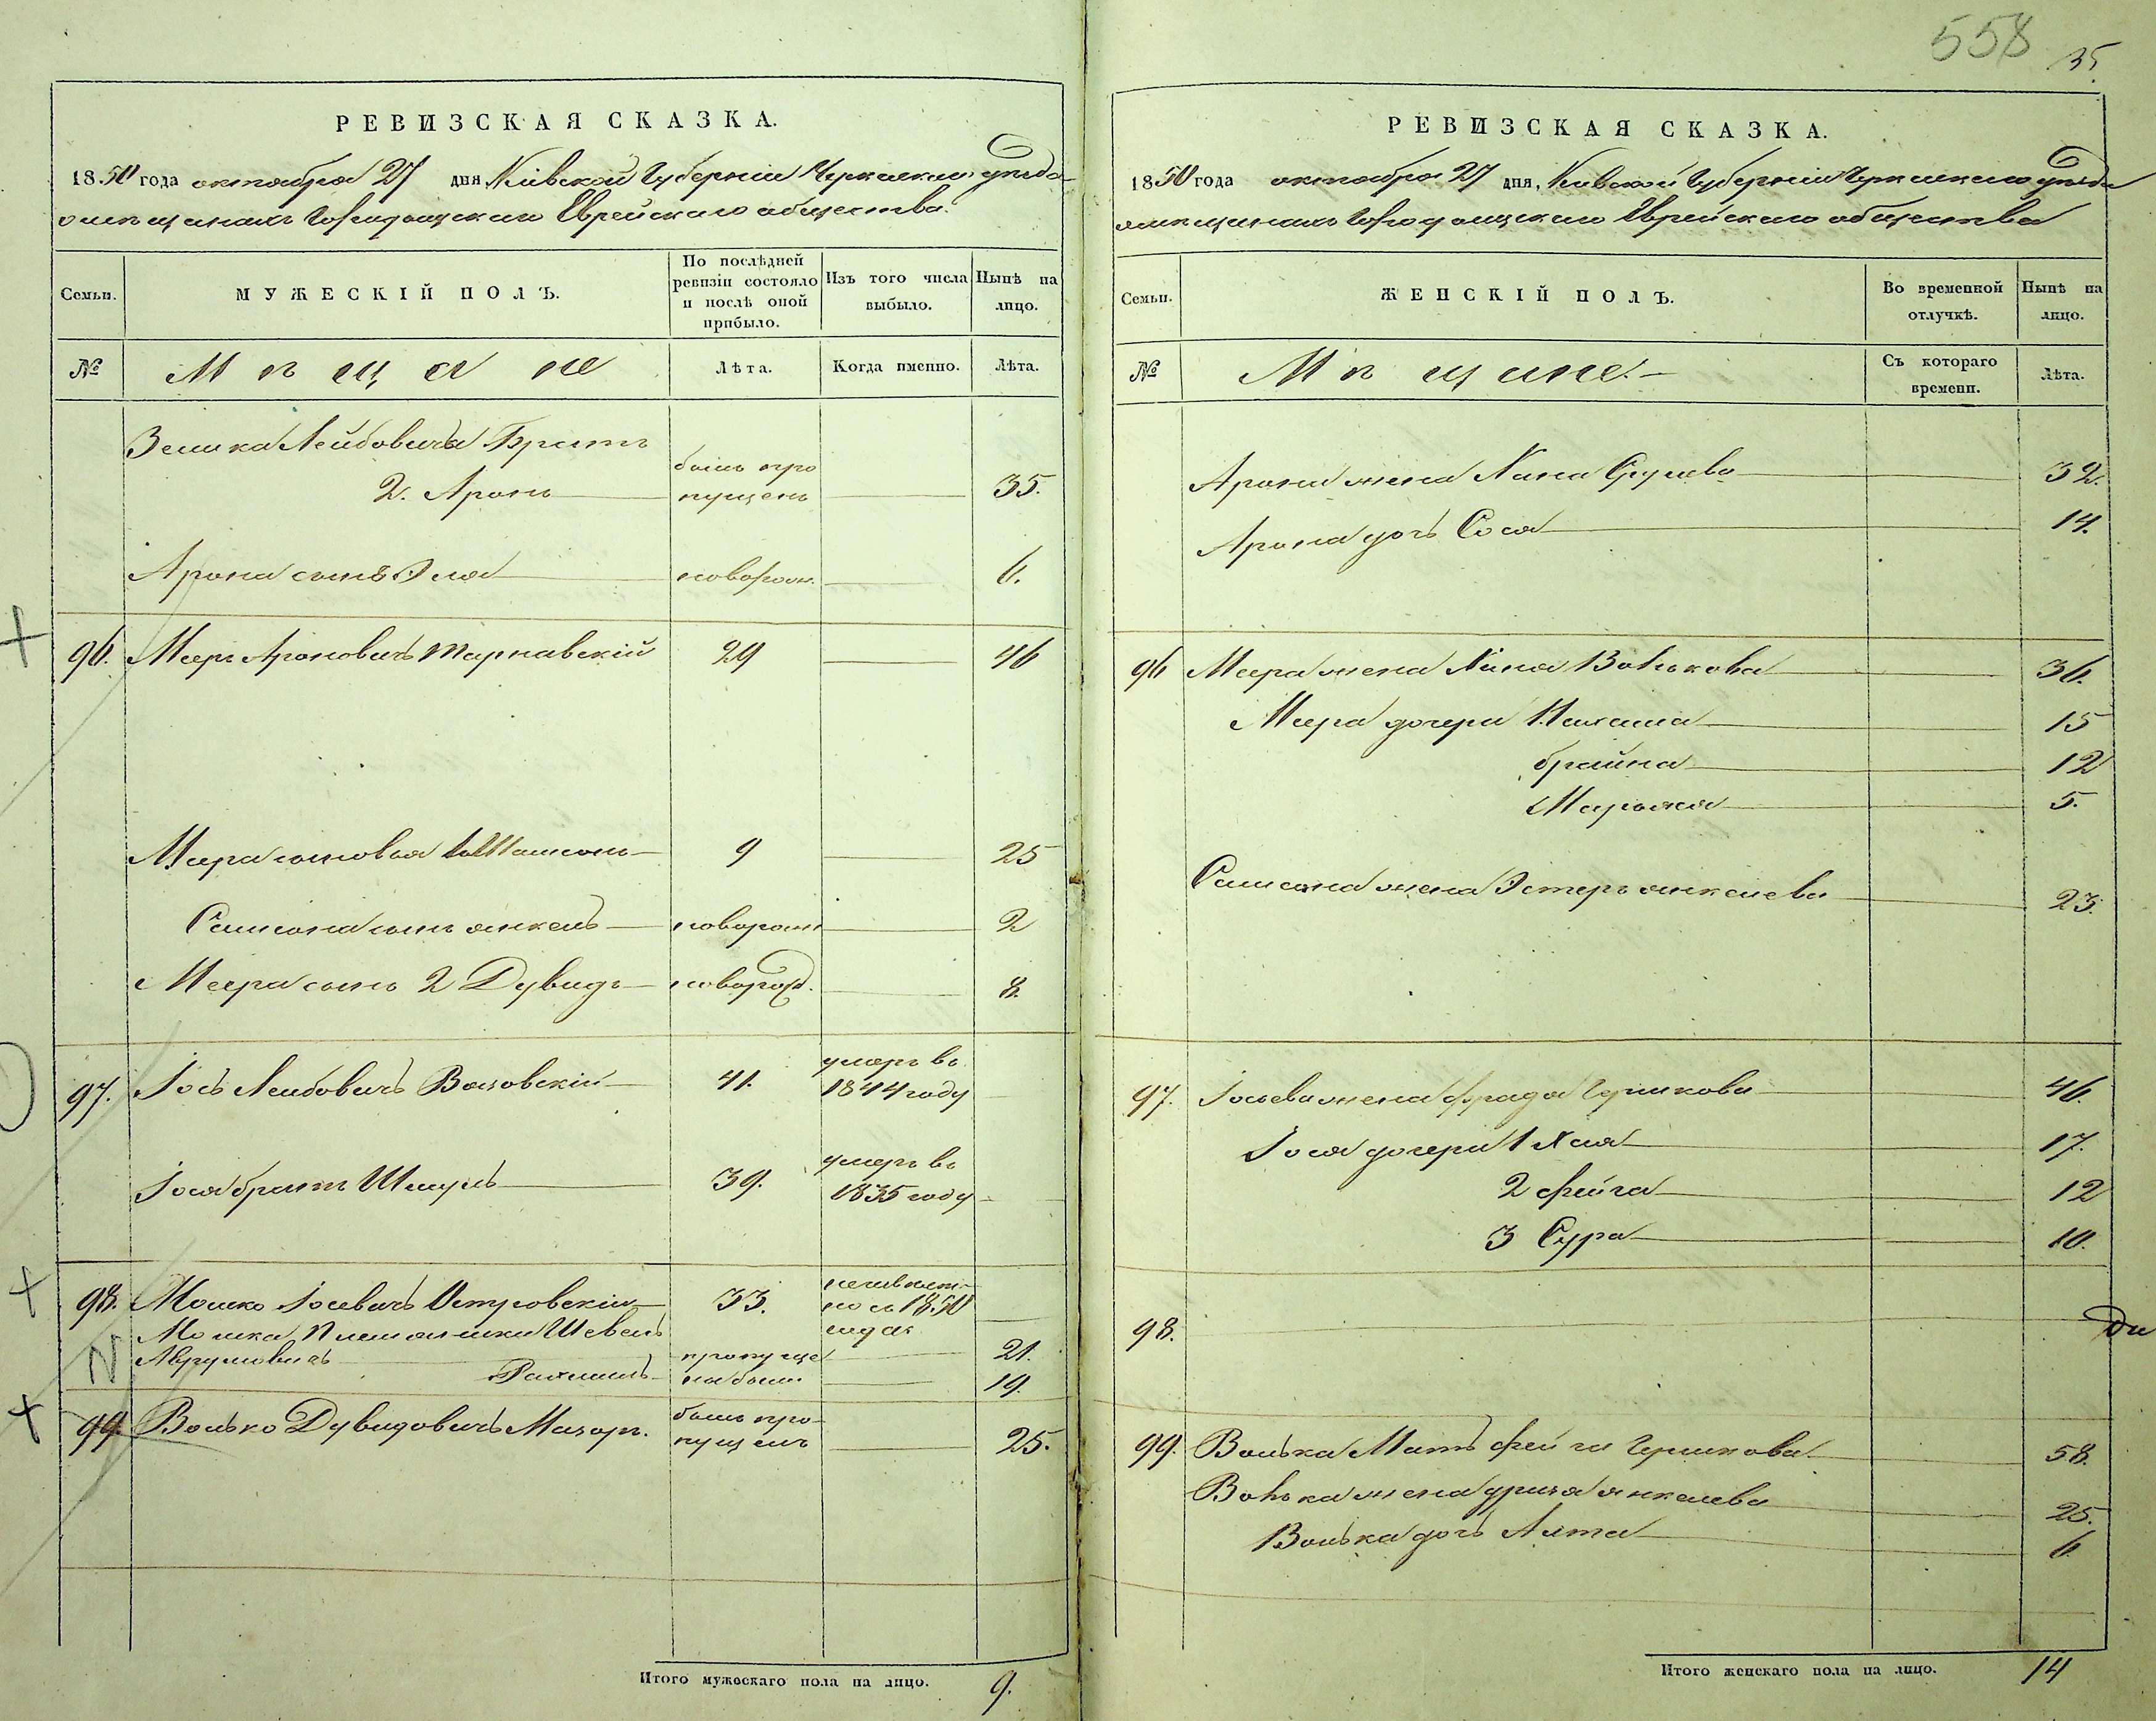 558 35
РЕВИЗСКАЯ СКАЗКА.
1850 года октября 27 дня Кіевской Губерніи Черкаскаго уѣзда
о мѣщанахъ Городищскаго Еврейскаго общества.
Семьи.
МУЖЕСКІЙ ПОЛЪ.
По послѣдней ревизіи состояло и послѣ оной прибыло.
Изъ того числа выбыло.
Нынѣ на лицо.
№ Мѣщане Лѣта. Когда именно. Лѣта.
Зелика Лейбовича Братъ
2. Аронъ былъ пропущенъ 35.
Арона сынъ Эля новорож. 6.
96. Меер Ароновичъ Тарнавскій 29 46
Меера сыновья 1 Шамсонъ 9 25
Самсона сынъ Янкель новорожд 2
Меера сынъ 2 Дувидъ новорожд. 8.
97. Іось Лейбовичъ 41. умеръ въ 1844 году
Іося братъ Шмуль 39. умеръ въ 1835 году
98. Мошко Іосевичъ Островскій 33. неизвѣстно съ 1850 года
Мошка Племянники Шевель
Абрумовичъ пропуще 21.
Рахмиль ны были 19.
99. Волько Дувидовичъ Мазоръ. былъ пропущенъ 25.
Итого мужескаго пола на лицо. 9.
РЕВИЗСКАЯ СКАЗКА.
1850 года октября 27 дня, Кіевской Губерніи Черкаскаго уѣзда
о мѣщанахъ Городищскаго Еврейскаго общества
Семьи.
ЖЕНСКІЙ ПОЛЪ.
Во временной отлучкѣ.
Нынѣ на лицо.
№ Мѣщане. Съ котораго времени. Лѣта.
Арона жена Хана Срулева 32.
Арона дочь Сося 14.
96 Меера жена Хана Волькова 36.
Меера дочери 15
брайна 12
Марьяся 5.
Самсона жена Эстеръ Янкелева 23.
97. Іосева жена Фрада Гершкова 46.
Іося дочери 1 Хая 17.
2 Фейга 12
3 Сура 10.
98.
99. Волька Мать Фейга Гершкова 58.
Волька жена Янкелева 25.
Волька дочь Алта 6
Итого женскаго пола на лицо. 14